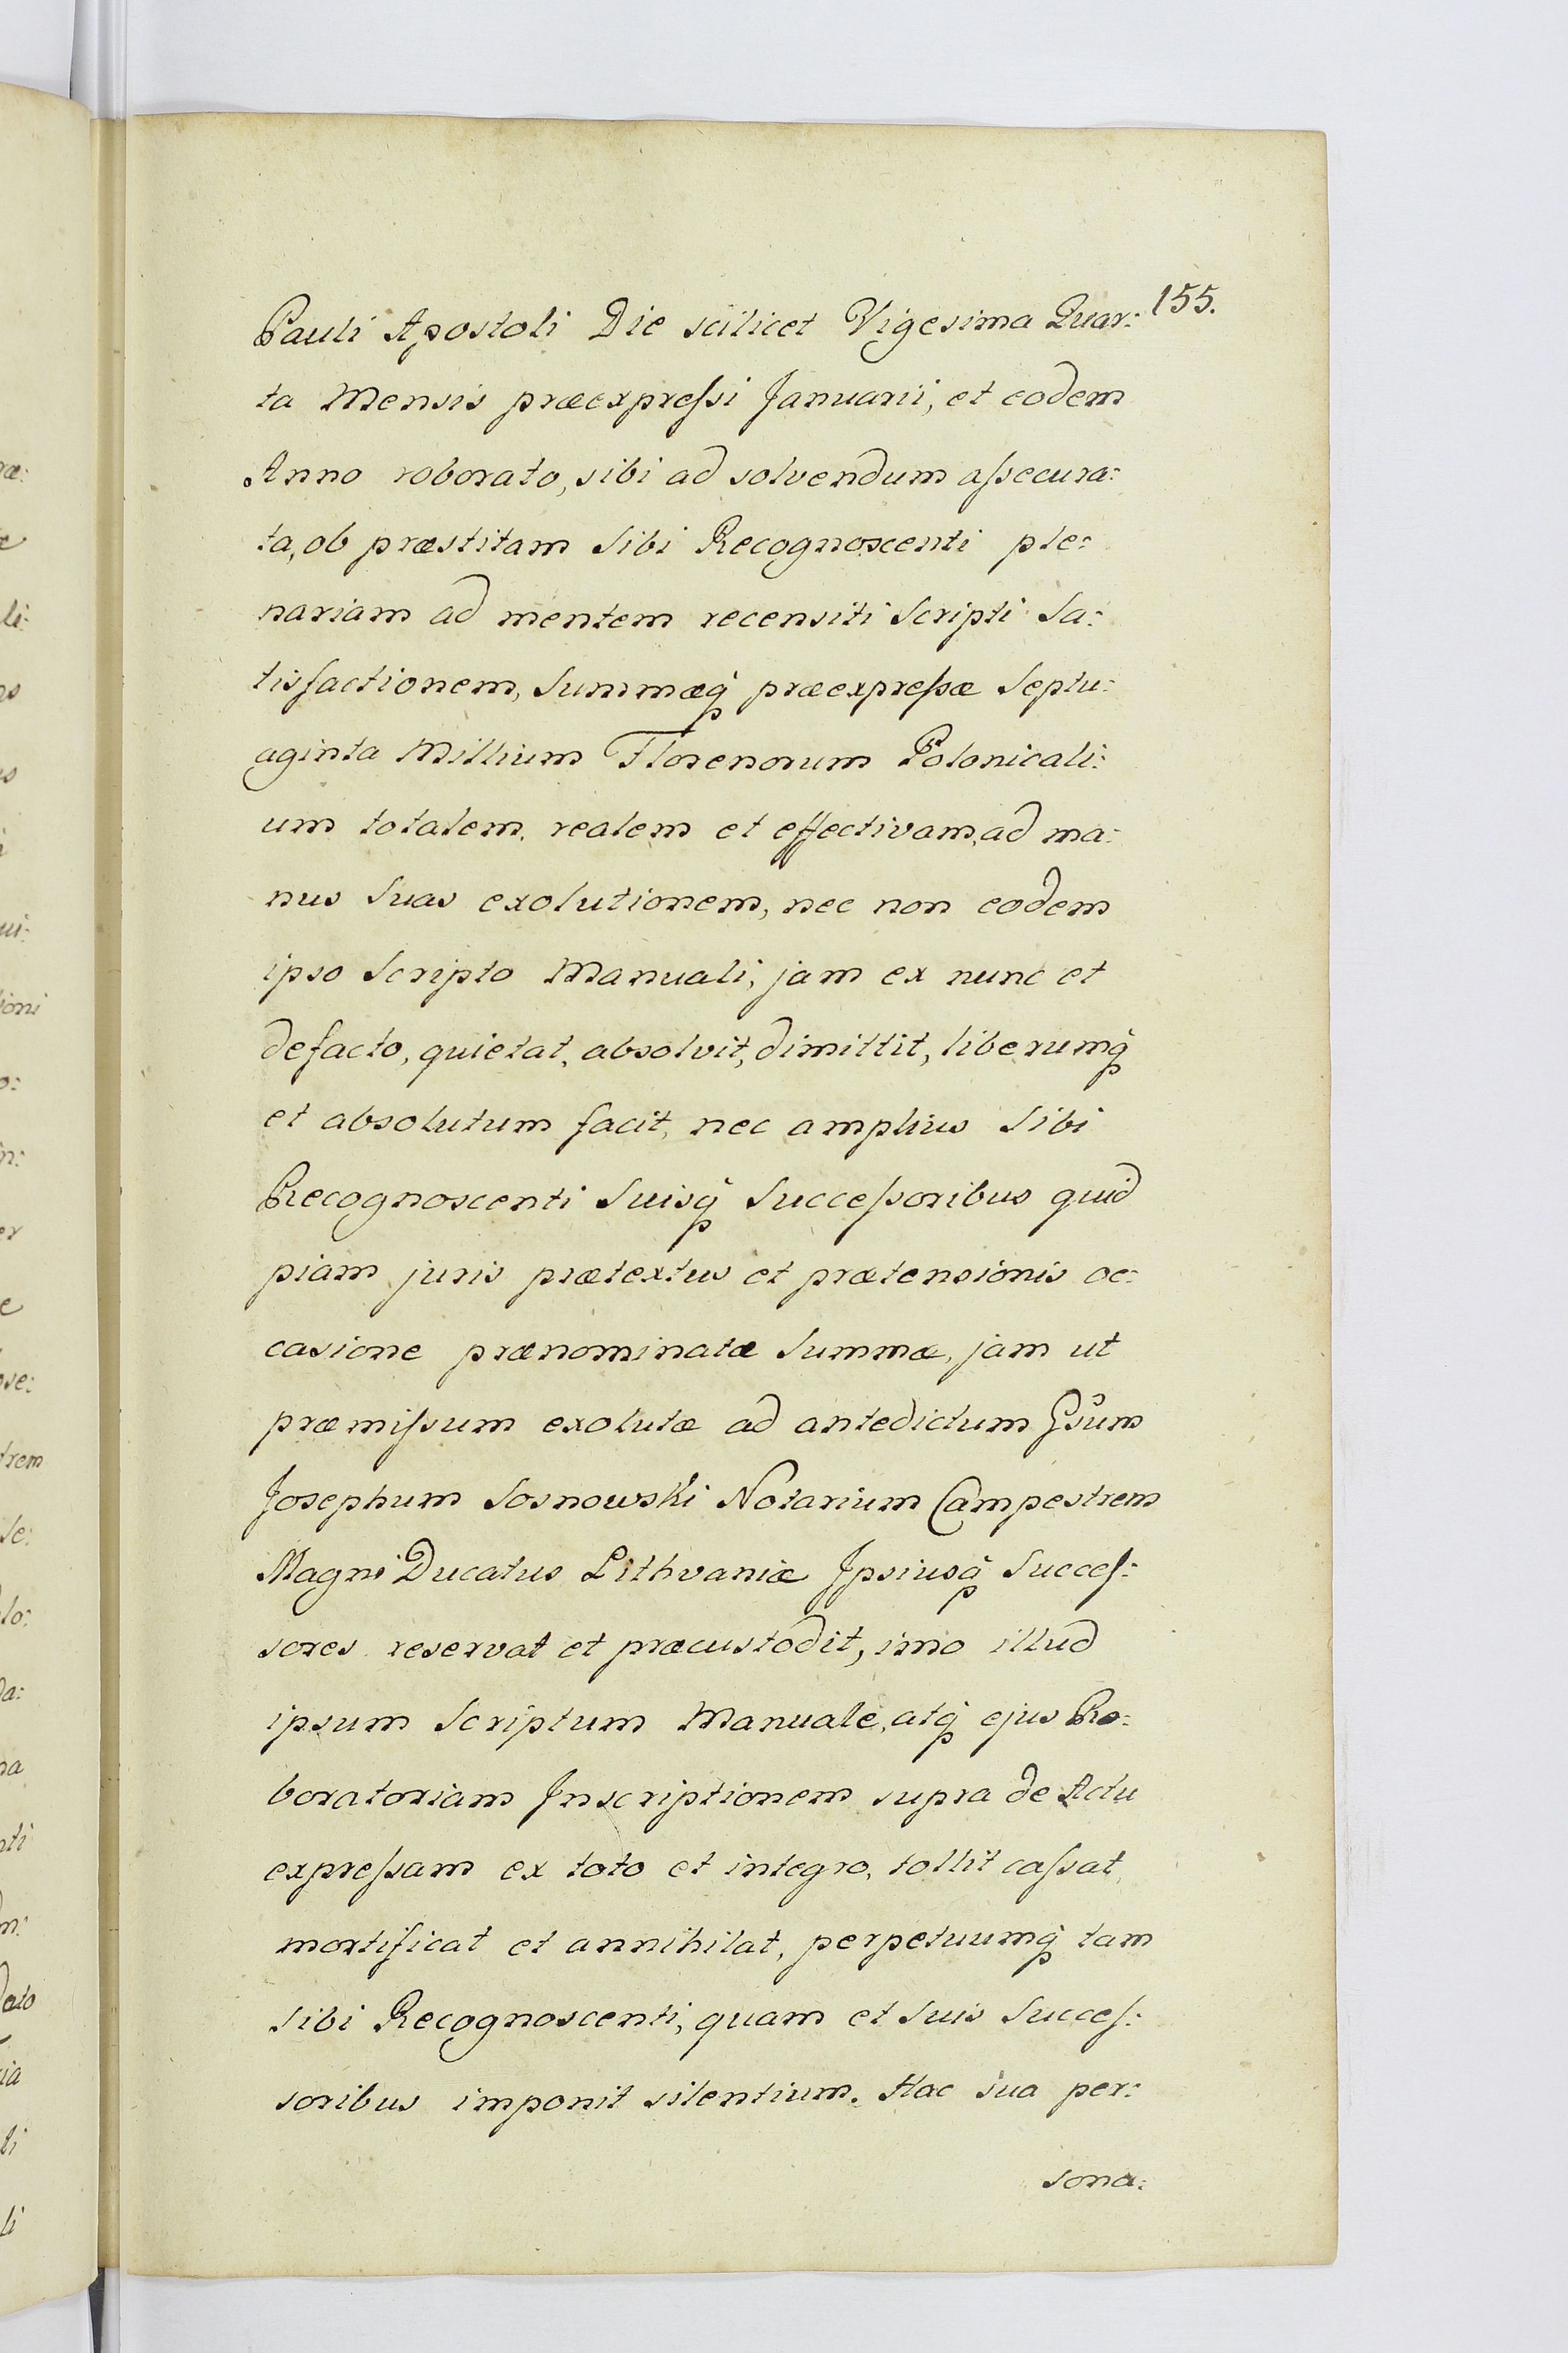 155.
Pauli Apostoli Die scilicet Vigesima Quar:
ta Mensis præexpreſsi Januarii, et eodem
Anno roborato, sibi ad solvendum aſsecura:
ta, ob præstitam Sibi Recognoscenti ple:
nariam ad mentem recensiti Scripti Sa:
tisfactionem, Summæq́ præexpreſsæ Septu:
aginta Millium Florenorum Polonicali:
um totalem, realem et effectivam, ad ma:
nus Suas exolutionem, nec non eodem
ipso Scripto Manuali, jam ex nunc et
defacto, quietat, absolvit, dimittit, liberumq́
et absolutum facit, nec amplius Sibi
Recognoscenti Suisq́ Succeſsoribus quid
piam juris prætextus et prætensionis oc:
casione prænominatæ Summæ, jam ut
præmiſsum exolutæ ad antedictum Gsum
Josephum Sosnowski Notarium Campestrem
Magni Ducatus Lithvaniæ Ipsiusq́ Succeſ:
sores reservat et præcustodit, imo illud
ipsum Scriptum Manuale, atq́ ejus Ro:
boratoriam Inscriptionem supra de Actu
expreſsam ex toto et integro, tollit caſsat,
mortificat et annihilat, perpetuumq́ tam
sibi Recognoscenti, quam et Suis Succeſ:
soribus imponit silentium. Hac sua per:
sona: